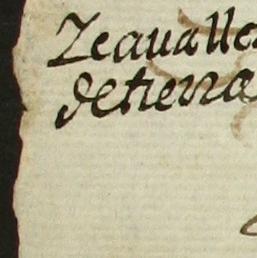 Zeaualle
de tierra